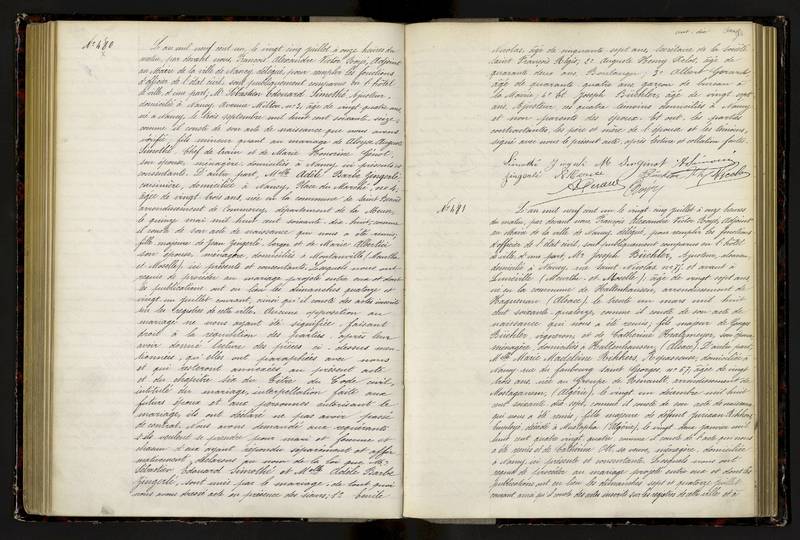 N° 480
L'an mil neuf cent un, le vingt cinq juillet à onze heures du
matin, par devant nous, François Alexandre Victor Boyé, Adjoint
au Maire de la ville de Nancy délégué, pour remplir les fonctions
d'officier de l'état civil, sont publiquement comparus en l'hôtel
de ville, d'une part, Mr Sébastien Edouard Simothé, Ajusteur,
domicilié à Nancy, Avenue Milton, n° 3, âgé de vingt quatre ans,
né à Nancy, le trois septembre mil huit cent soixante seize,
comme il conste de son acte de naissance que nous avons
vérifié, fils mineur quant au mariage de Aloyse Auguste
Simothé, Chef de train et de Marie Honorine
son épouse, ménagère, domiciliés à Nancy, ici présents et
consentants. D'autre part, Melle Adèle Barbe Gingerlé,
cuisinière, domiciliée à Nancy, Place du Marché, n° 4,
âgée de vingt trois ans, née en la commune de Saint
arrondissement de Commercy, département de la Meuse,
le quinze mai mil huit cent soixante dix huit, comme
il conste de son acte de naissance qui nous a été remis,
fille majeure de Jean Gingerlé, et de Marie
son épouse, ménagère, domiciliés à Montauville (Meurthe
et Moselle), ici présents et consentants. Lesquels nous ont
requis de procéder au mariage projeté entre eux et dont
les publications ont eu lieu les dimanches quatorze et
vingt un juillet courant, ainsi qu'il conste des actes inscrits
sur les registres de cette ville. Aucune opposition au
mariage ne nous ayant été signifiée, faisant
droit à la réquisition des parties, après leur
avoir donné lecture des pièces ci-dessus men-
tionnées, qui elles ont paraphées avec nous
et qui resteront annexées au présent acte
et du chapitre six du Titre du Code civil,
intitulé du mariage, interpellation faite aux
futurs époux et aux personnes autorisant le
mariage, ils ont déclaré ne pas avoir passé
de contrat. Nous avons demandé aux requérants
s'ils veulent se prendre pour mari et femme et
chacun d'eux ayant répondu séparément et affir-
mativement, déclarons au nom de la loi que Mr
Sébastien Edouard Simothé et Melle Adèle Barbe
Gingerlé, sont unis par le mariage, de tout quoi
nous avons dressé acte en présence des sieurs, 1° Emile
Nicolas, âgé de cinquante sept ans, Secrétaire de la Société
Saint François Régis, 2° Auguste Henry, âgé de
quarante deux ans, Boulanger, 3° Albert Gérard,
âgé de quarante quatre ans, garçon de bureau à
la Mairie, 4° Et Joseph Biechler, âgé de vingt sept
ans, Ajusteur, ces quatre témoins domiciliés à Nancy
et non parents des époux. Et ont, les parties
contractantes, les père et mère de l'époux et les témoins,
signé avec nous le présent acte, après lecture et collation faite.
Simothé
Gingerlé
A Gérard
Nicolas
Boyé
N° 481
L'an mil neuf cent un le vingt cinq juillet à onze heures
du matin, par devant nous François Alexandre Victor Boyé, Adjoint
au Maire de la ville de Nancy délégué, pour remplir les fonctions
d'officier de l'état civil, sont publiquement comparus en l'hôtel
de ville, d'une part, Mr Joseph Biechler, Ajusteur,
domicilié à Nancy, rue Saint Nicolas n° 37, et avant à
Lunéville (Meurthe et Moselle), âgé de vingt sept ans
né en la commune de Huttenhausen, arrondissement de
Haguenau (Alsace), le trente un mars mil huit
cent soixante quatorze, comme il conste de son acte de
naissance qui nous a été remis, fils majeur de Georges
Biechler, vigneron, et de Catherine son épouse,
ménagère, domiciliés à Huttenhausen (Alsace). D'autre part,
Melle Marie Madeleine Richkers, Repasseuse, domiciliée à
Nancy rue du faubourg Saint Georges n° 57, âgée de vingt
trois ans, née au Groupe de Renault, arrondissement de
Mostaganem (Algérie), le vingt un décembre mil huit
cent soixante dix sept comme il conste de son acte de naissance
qui nous a été remis, fille majeure de défunt
décédé à Mustapha (Algérie), le vingt deux janvier mil
huit cent quatre vingt quatre comme il conste de l'acte qui nous
a été remis et de Catherine sa veuve, ménagère, domiciliée
à Nancy, ici présente et consentante. Lesquels nous ont
requis de procéder au mariage projeté entre eux et dont les
publications ont eu lieu les dimanches sept et quatorze juillet
courant, ainsi qu'il conste des actes inscrits sur les registres de cette ville et à